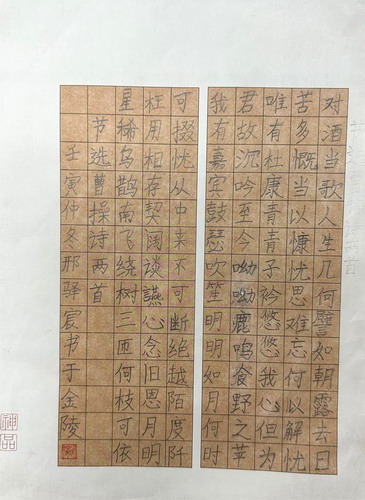 对酒当歌人生几何譬如朝露去日
苦多慨当以慷忧思难忘何以解忧
唯有杜康青青子衿悠悠我心但为
君故沉吟至今呦呦鹿鸣食野之苹
我有嘉宾鼓瑟吹笙明明如月何时
可掇忧从中来不可断绝越陌度阡
枉用相存契阔谈讌心念旧恩月明
星稀乌鹊南飞绕树三匝何枝可依
节选曹操诗两首
壬寅仲冬邢驿宸书于金陵
神品